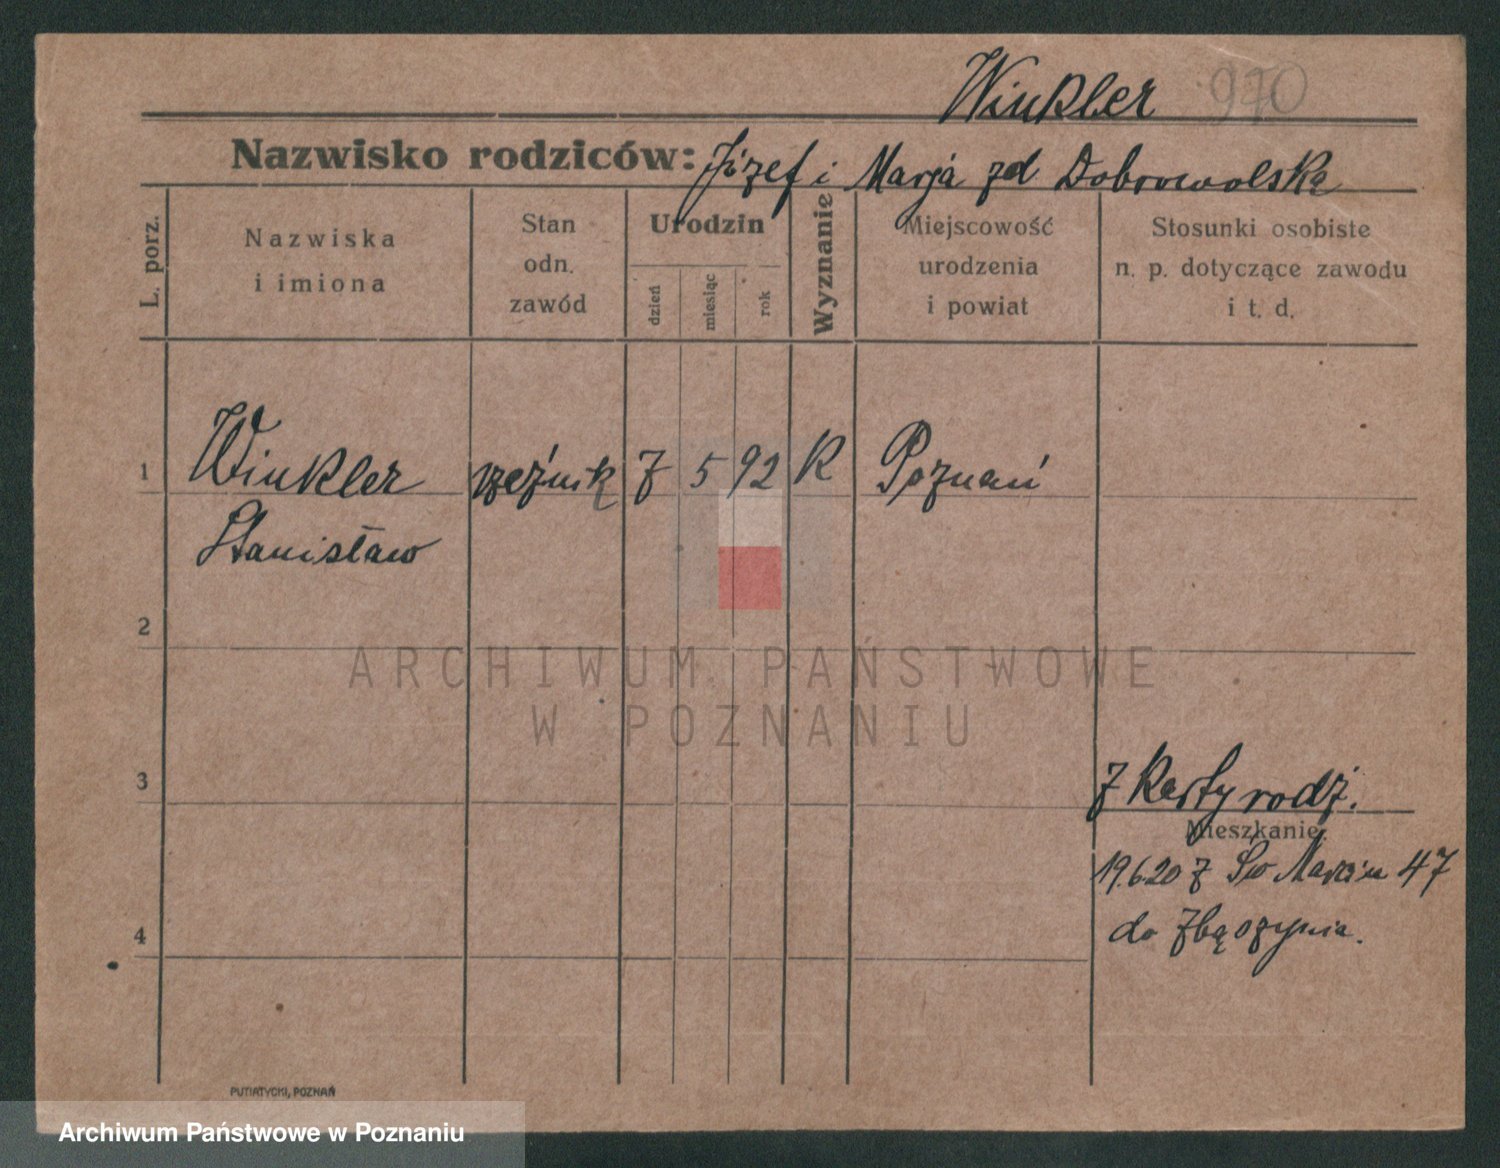 Winkler 970
Nazwisko rodziców: Józef i Marja zd Dobrowolska
L. porz.
Nazwiska
i imiona
Stan
odn.
zawód
Urodzin
dzień
miesiąc
rok
Wyznanie
Miejscowość
urodzenia
i powiat
Stosunki osobiste
n. p. dotyczące zawodu
i t. d.
1 Winkler rzeźnik 7 5 92 K Poznań
Stanisław
2
ARCHIWUM PAŃSTWOWE
W POZNANIU
3
z Karty rodz.
Mieszkanie:
19.6.20 z Św Marcin 47
do Zbąszynia.
4
PUTIATYCKI, POZNAŃ
Archiwum Państwowe w Poznaniu